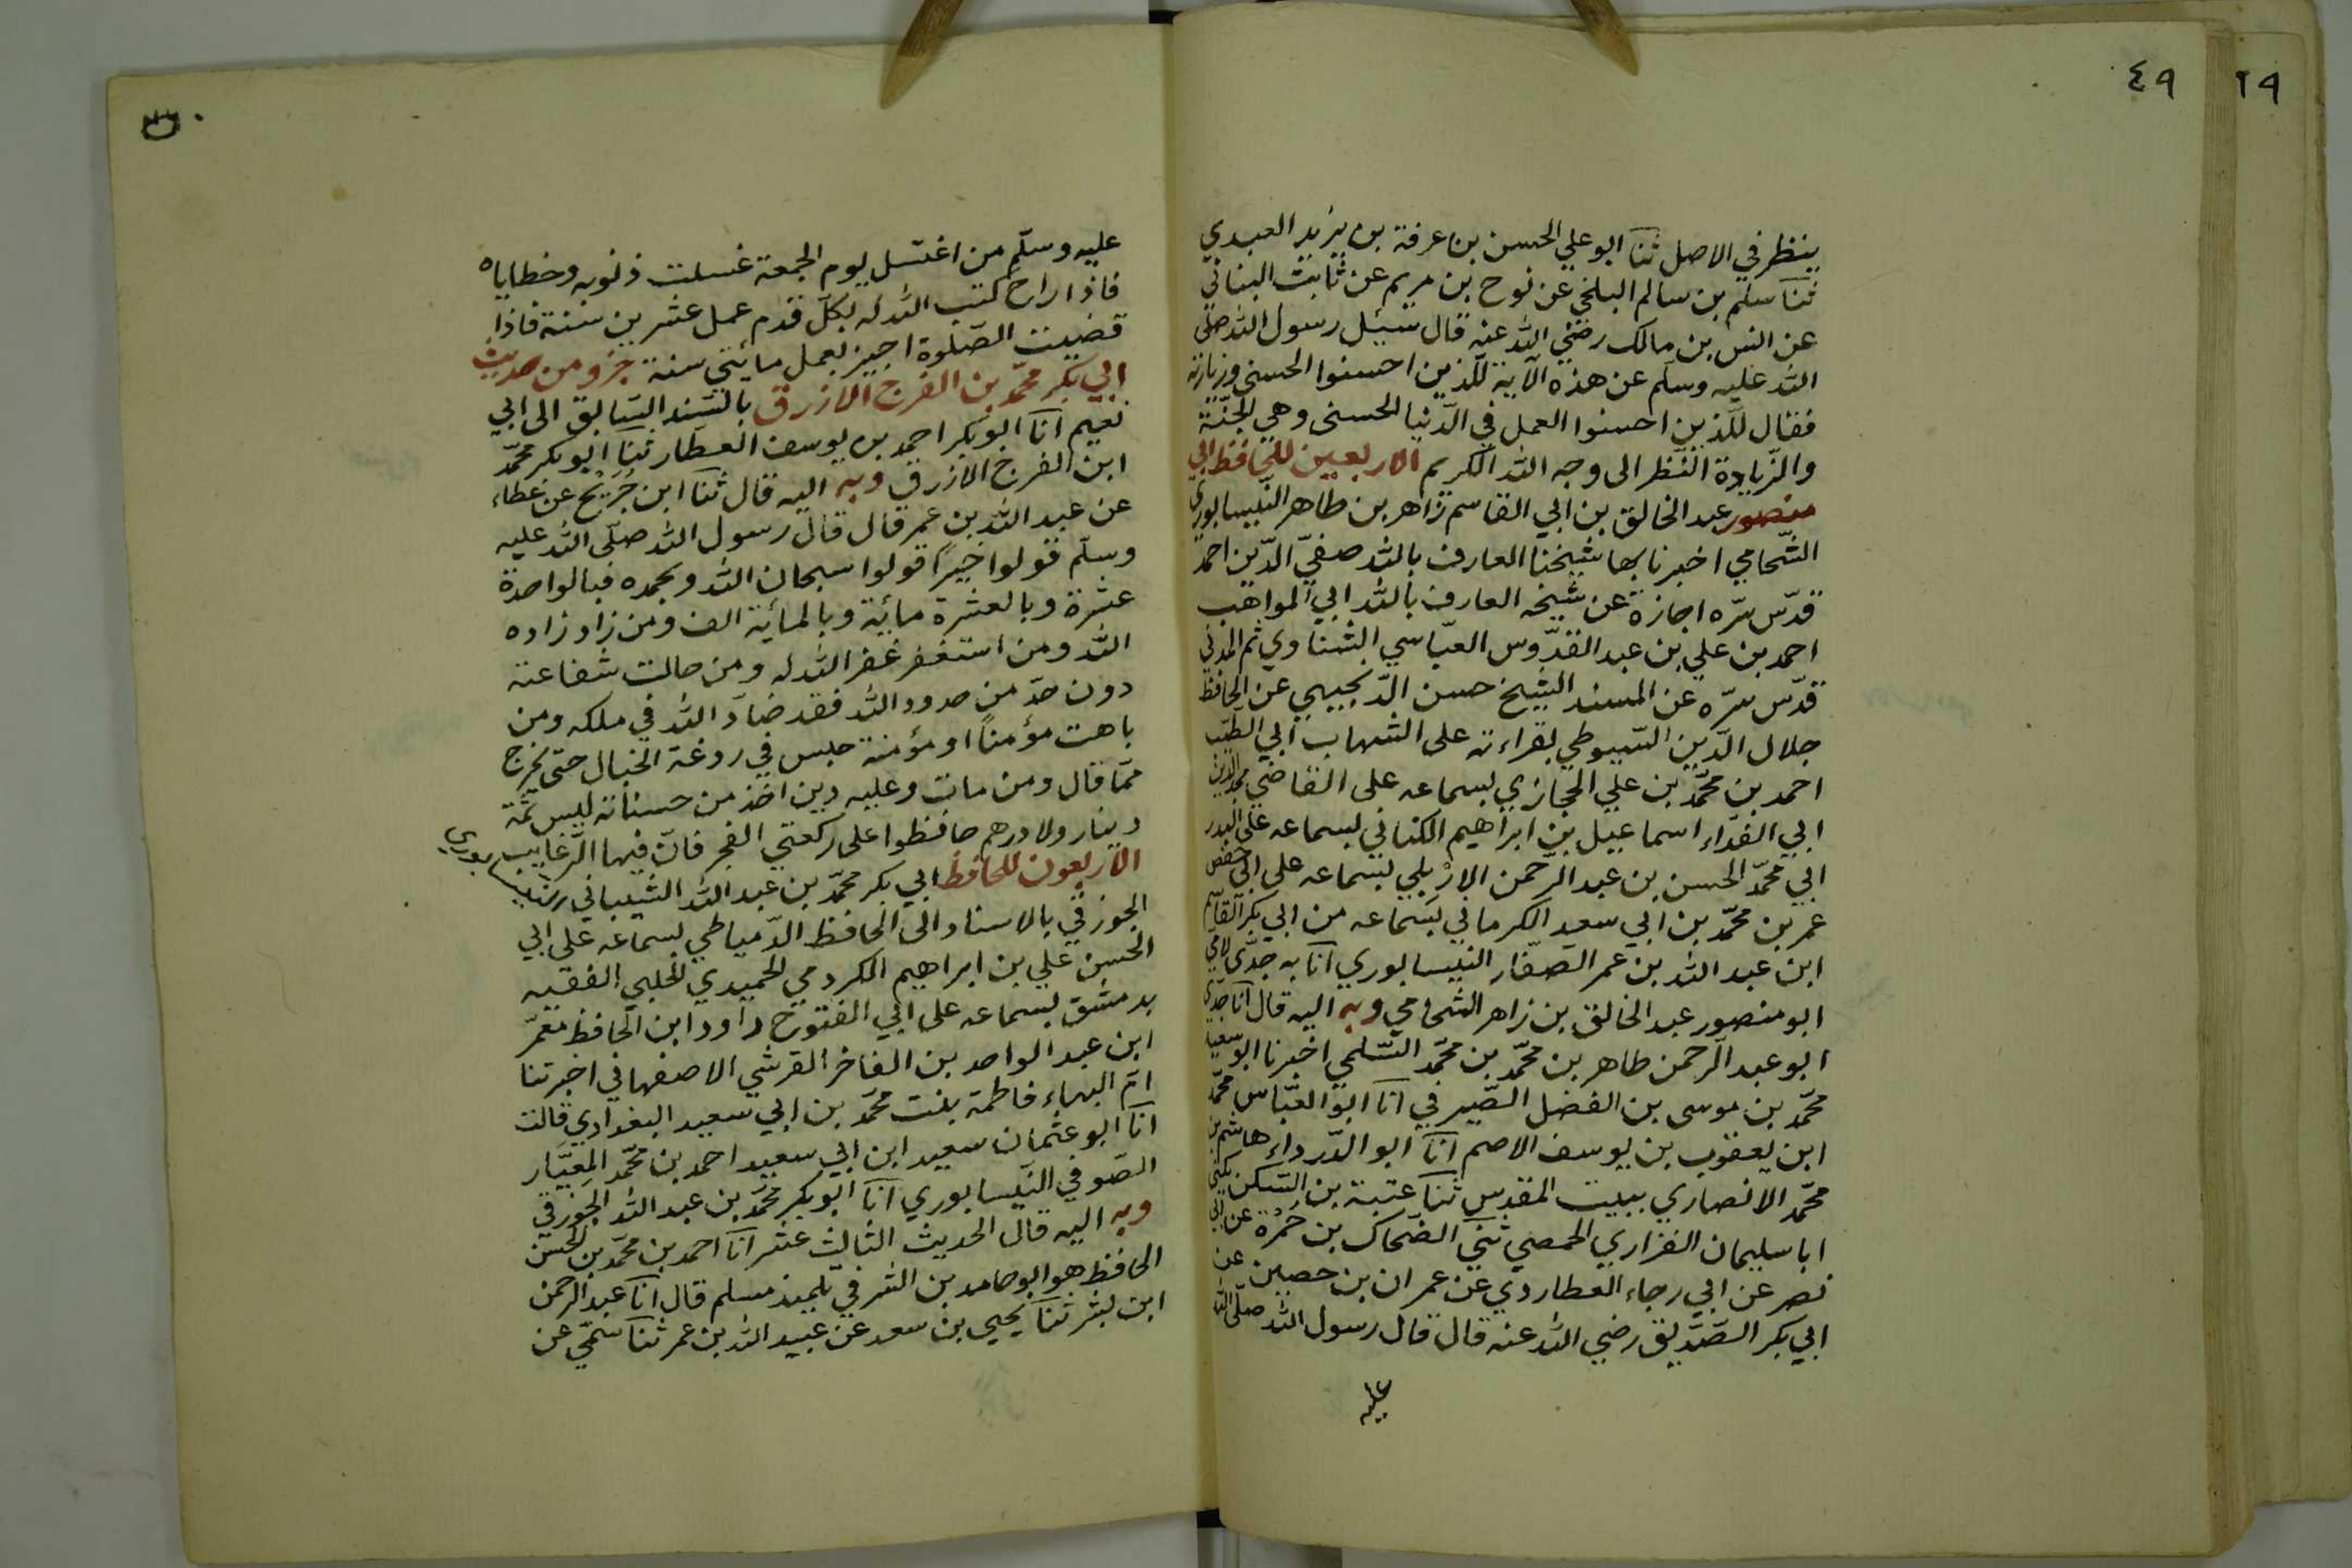 ٤٩
٢٩
ينظر في الاصل ثنا ابو علي الحسن بن عرفة بن يزيد العبدي
ثنا سلم بن سالم البلخي عن نوح بن مريم عن ثابت البناني
عن انس بن مالك رضي الله عنه قال سئل رسول الله صلى
الله عليه وسلم عن هذه الآية للذين احسنوا الحسنى وزيادة
فقال للذين احسنوا العمل في الدنيا الحسنى وهي الجنّة
والزّيادة النّظر الى وجه الله الكريم الاربعين للحافظ ابي
منصور عبد الخالق بن ابي القاسم زاهر بن طاهر النّيسابوري
الشّحامي اخبرنا بها شيخنا العارف بالله صفيّ الدّين احمد
قدّس سرّه اجازة عن شيخه العارف بالله ابي المواهب
احمد بن علي بن عبد القدّوس العبّاسي الشناوي ثم المدني
قدّس سرّه عن المسند الشيخ حسن الدّنجيهي عن الحافظ
جلال الدّين السّيوطي بقراءته على الشهاب ابي الطيّب
احمد بن محمّد بن علي الحجازي بسماعه على القاضي مجد الدين
ابي الفداء اسماعيل بن ابراهيم الكناني بسماعه على البدر
ابي محمّد الحسن بن عبد الرّحمن الاربلي بسماعه على ابي حفص
عمر بن محمّد بن ابي سعيد الكرماني بسماعه من ابي بكر القاسم
ابن عبد الله بن عمر الصفّار النيسابوري انا به جدّي لامي
ابو منصور عبد الخالق بن زاهر الشحامي وبه اليه قال انا جدي
ابو عبد الرّحمن طاهر بن محمّد بن محمّد الشّلمي اخبرنا ابو سعيد
محمّد بن موسى بن الفضل الصّيرفي انا ابو العبّاس محمّد
ابن يعقوب بن يوسف الاصم انا ابو الدّرداء هاشم بن
محمّد الانصاري ببيت المقدس ثنا عتبة بن السّكن يكنى
ابا سليمان الفزاري الحمصي ثني الضحاك بن حمزة عن ابي
نصر عن ابي رجاء العطاردي عن عمران بن حصين عن
ابي بكر الصّدّيق رضي الله عنه قال قال رسول الله صلّى الله
عليه
عليه وسلّم من اغتسل يوم الجمعة غسلت ذنوبه وخطاياه
فاذا راح كتب الله له بكلّ قدم عمل عشرين سنة فاذا
قضيت الصّلوة اجيز بعمل مائتي سنة جزو من حديث
ابي بكر محمّد بن الفرج الازرق بالسّند السّابق الى ابي
نعيم انا ابو بكر احمد بن يوسف العطار ثنا ابو بكر محمّد
ابن الفرج الازرق وبه اليه قال ثنا ابن جُريج عن عطاء
عن عبد الله بن عمر قال قال رسول الله صلّى الله عليه
وسلّم قولوا خيرًا قولوا سبحان الله وبحمده فبالواحدة
عشرة وبالعشرة مائية وبالمائية الف ومن زاد زاده
الله ومن استغفر غفر الله له ومن حالت شفاعته
دون حدّ من حدود الله فقد ضادّ الله في ملكه ومن
باهت مؤمنًا او مؤمنة حبس في ردغة الخبال حتى يخرج
ممّا قال ومن مات وعليه دين اخذ من حسناته ليس ثمّة
دينار ولا درهم حافظوا على ركعتي الفجر فانّ فيها الرّغايب
الاربعون للحافظ ابي بكر محمّد بن عبد الله الشيباني
الجوزقي بالاسناد الى الحافظ الدّمياطي بسماعه على ابي
الحسن علي بن ابراهيم الكردمي الحميدي الحلبي الفقيه
بدمشق بسماعه على ابي الفتوح داود ابن الحافظ معمّر
ابن عبد الواحد بن الفاخر القرشي الاصفهاني اخبرتنا
امّ البهاء فاطمة بنت محمّد بن ابي سعيد البغدادي قالت
انا ابو عثمان سعيد ابن ابي سعيد احمد بن محمّد العيّار
الصّوفي النّيسابوري انا ابو بكر محمّد بن عبد الله الجوزقي
وبه اليه قال الحديث الثالث عشر انا احمد بن محمّد بن الحسن
الحافظ هو ابو حامد بن الشرقي تلميذ مسلم قال انا عبد الرحمن
ابن بشر ثنا يحيى بن سعد عن عبيد الله بن عمر ثنا سمّي عن